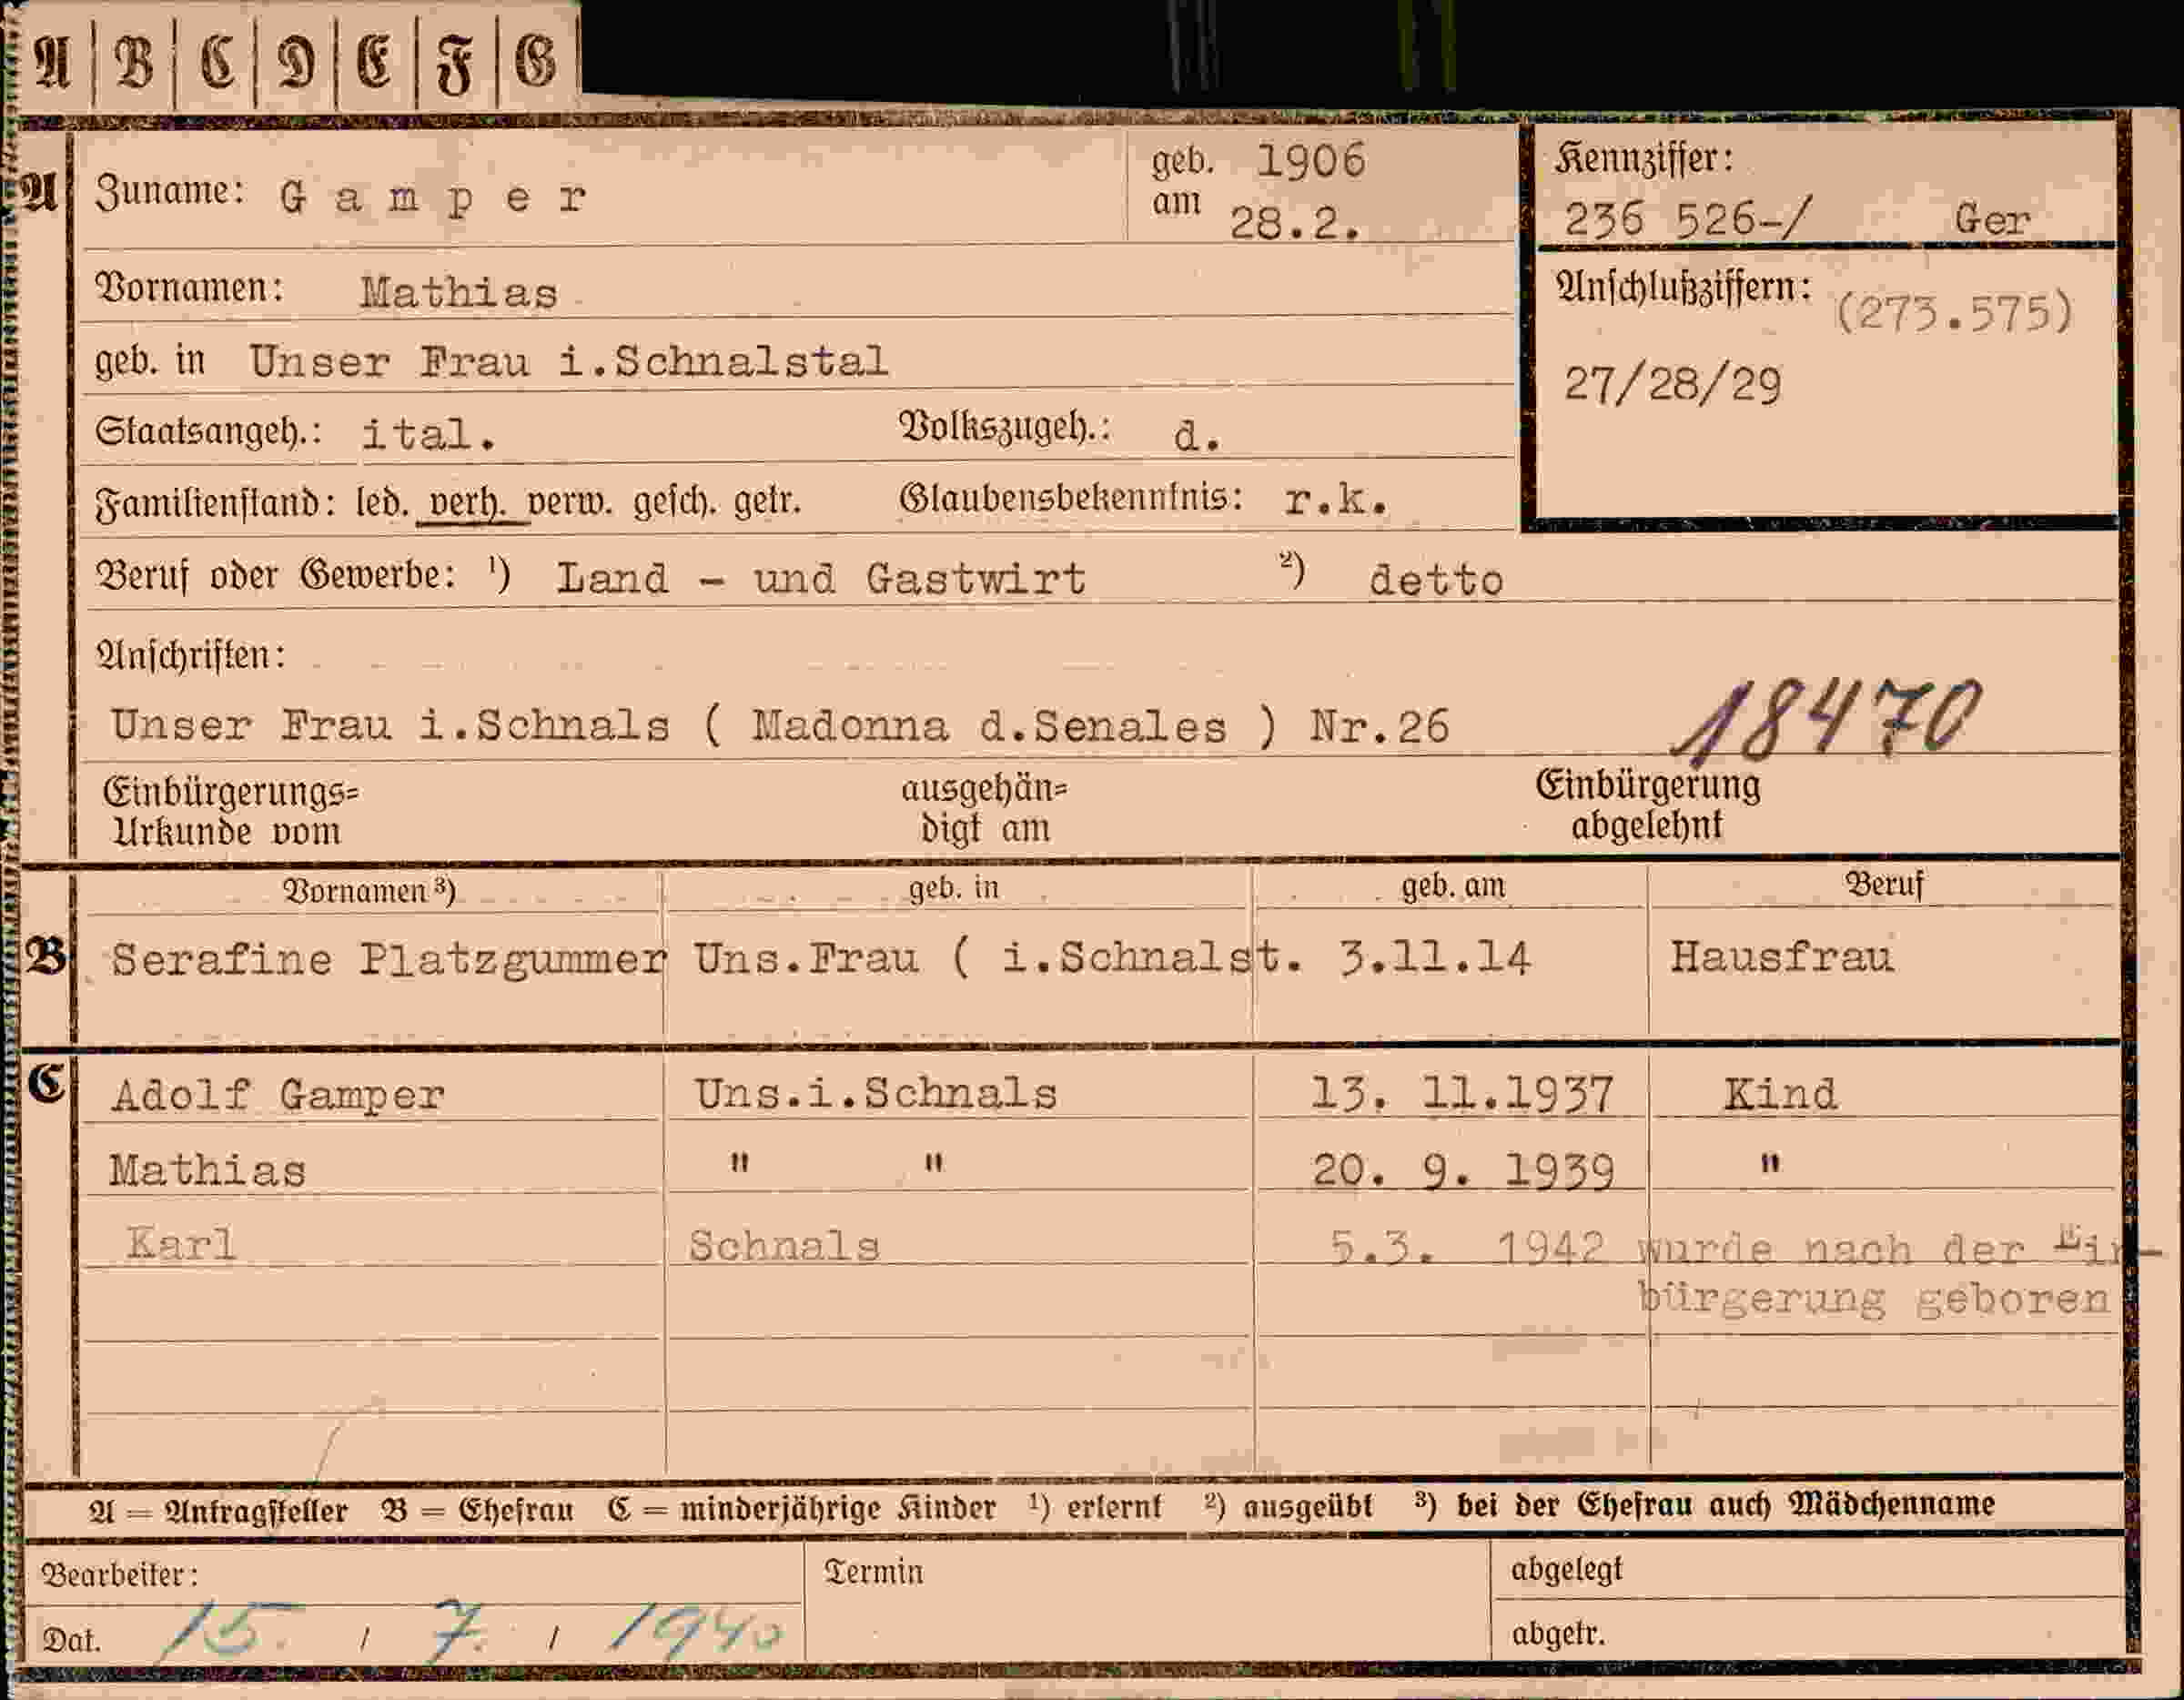 A | B | C | D | E | F | G
A Zuname: G a m p e r geb. am 1906 28.2.
Kennziffer:
236 526-/ Ger
Vornamen: Mathias
Anschlußziffern: (273.575)
27/28/29
geb. in Unser Frau i.Schnalstal
Staatsangeh.: ital. Volkszugeh.: d.
Familienstand: led. verh. verw. gesch. getr. Glaubensbekenntnis: r.k.
Beruf oder Gewerbe: ¹) Land - und Gastwirt ²) detto
Anschriften:
Unser Frau i.Schnals ( Madonna d.Senales ) Nr.26 18470
Einbürgerungs= ausgehän= Einbürgerung
Urkunde vom digt am abgelehnt
Vornamen ³) geb. in geb. am Beruf
B Serafine Platzgummer Uns.Frau ( i.Schnalst. 3.11.14 Hausfrau
C Adolf Gamper Uns.i.Schnals 13. 11.1937 Kind
Mathias " " 20. 9. 1939 "
Karl Schnals 5.3. 1942 wurde nach der Ein-
bürgerung geboren
A = Antragsteller B = Ehefrau C = minderjährige Kinder ¹) erlernt ²) ausgeübt ³) bei der Ehefrau auch Mädchenname
Bearbeiter: Termin abgelegt
Dat. 15. / 7. / 1940 abgetr.